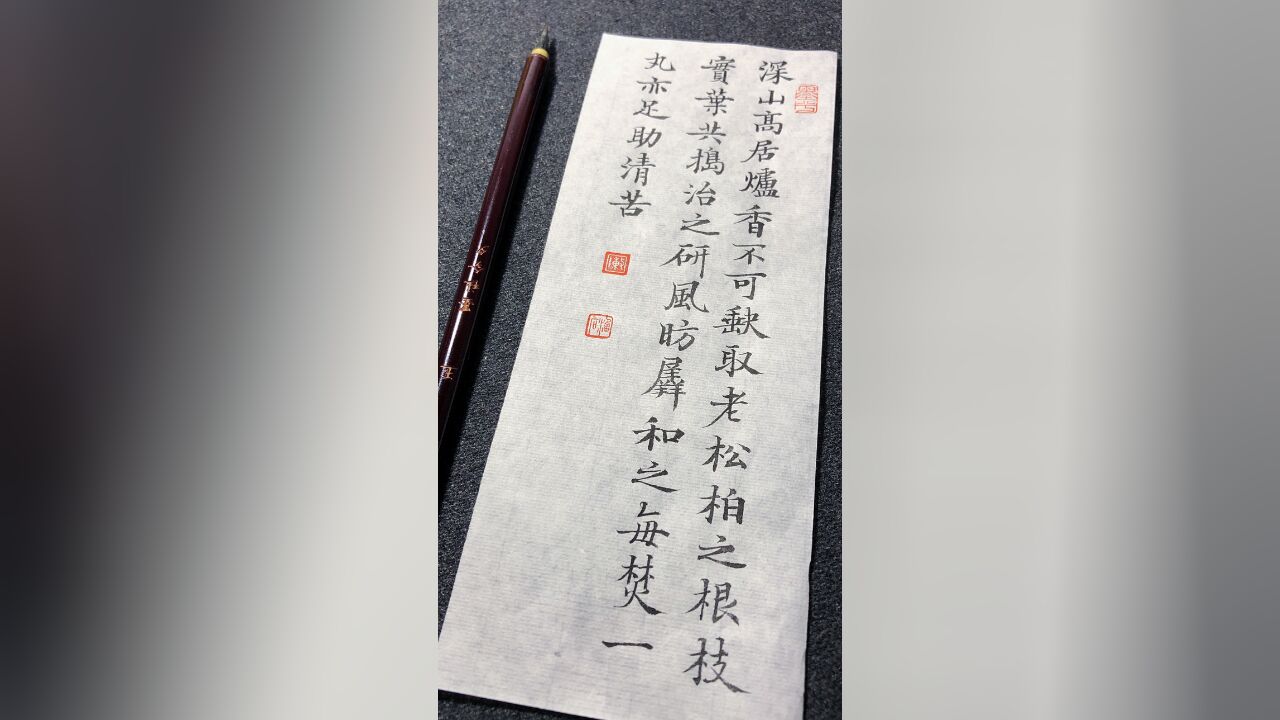 深山高居爐香不可缺取老松柏之根枝
實葉共搗治之研風昉羼和之每焚一
丸亦足助清苦